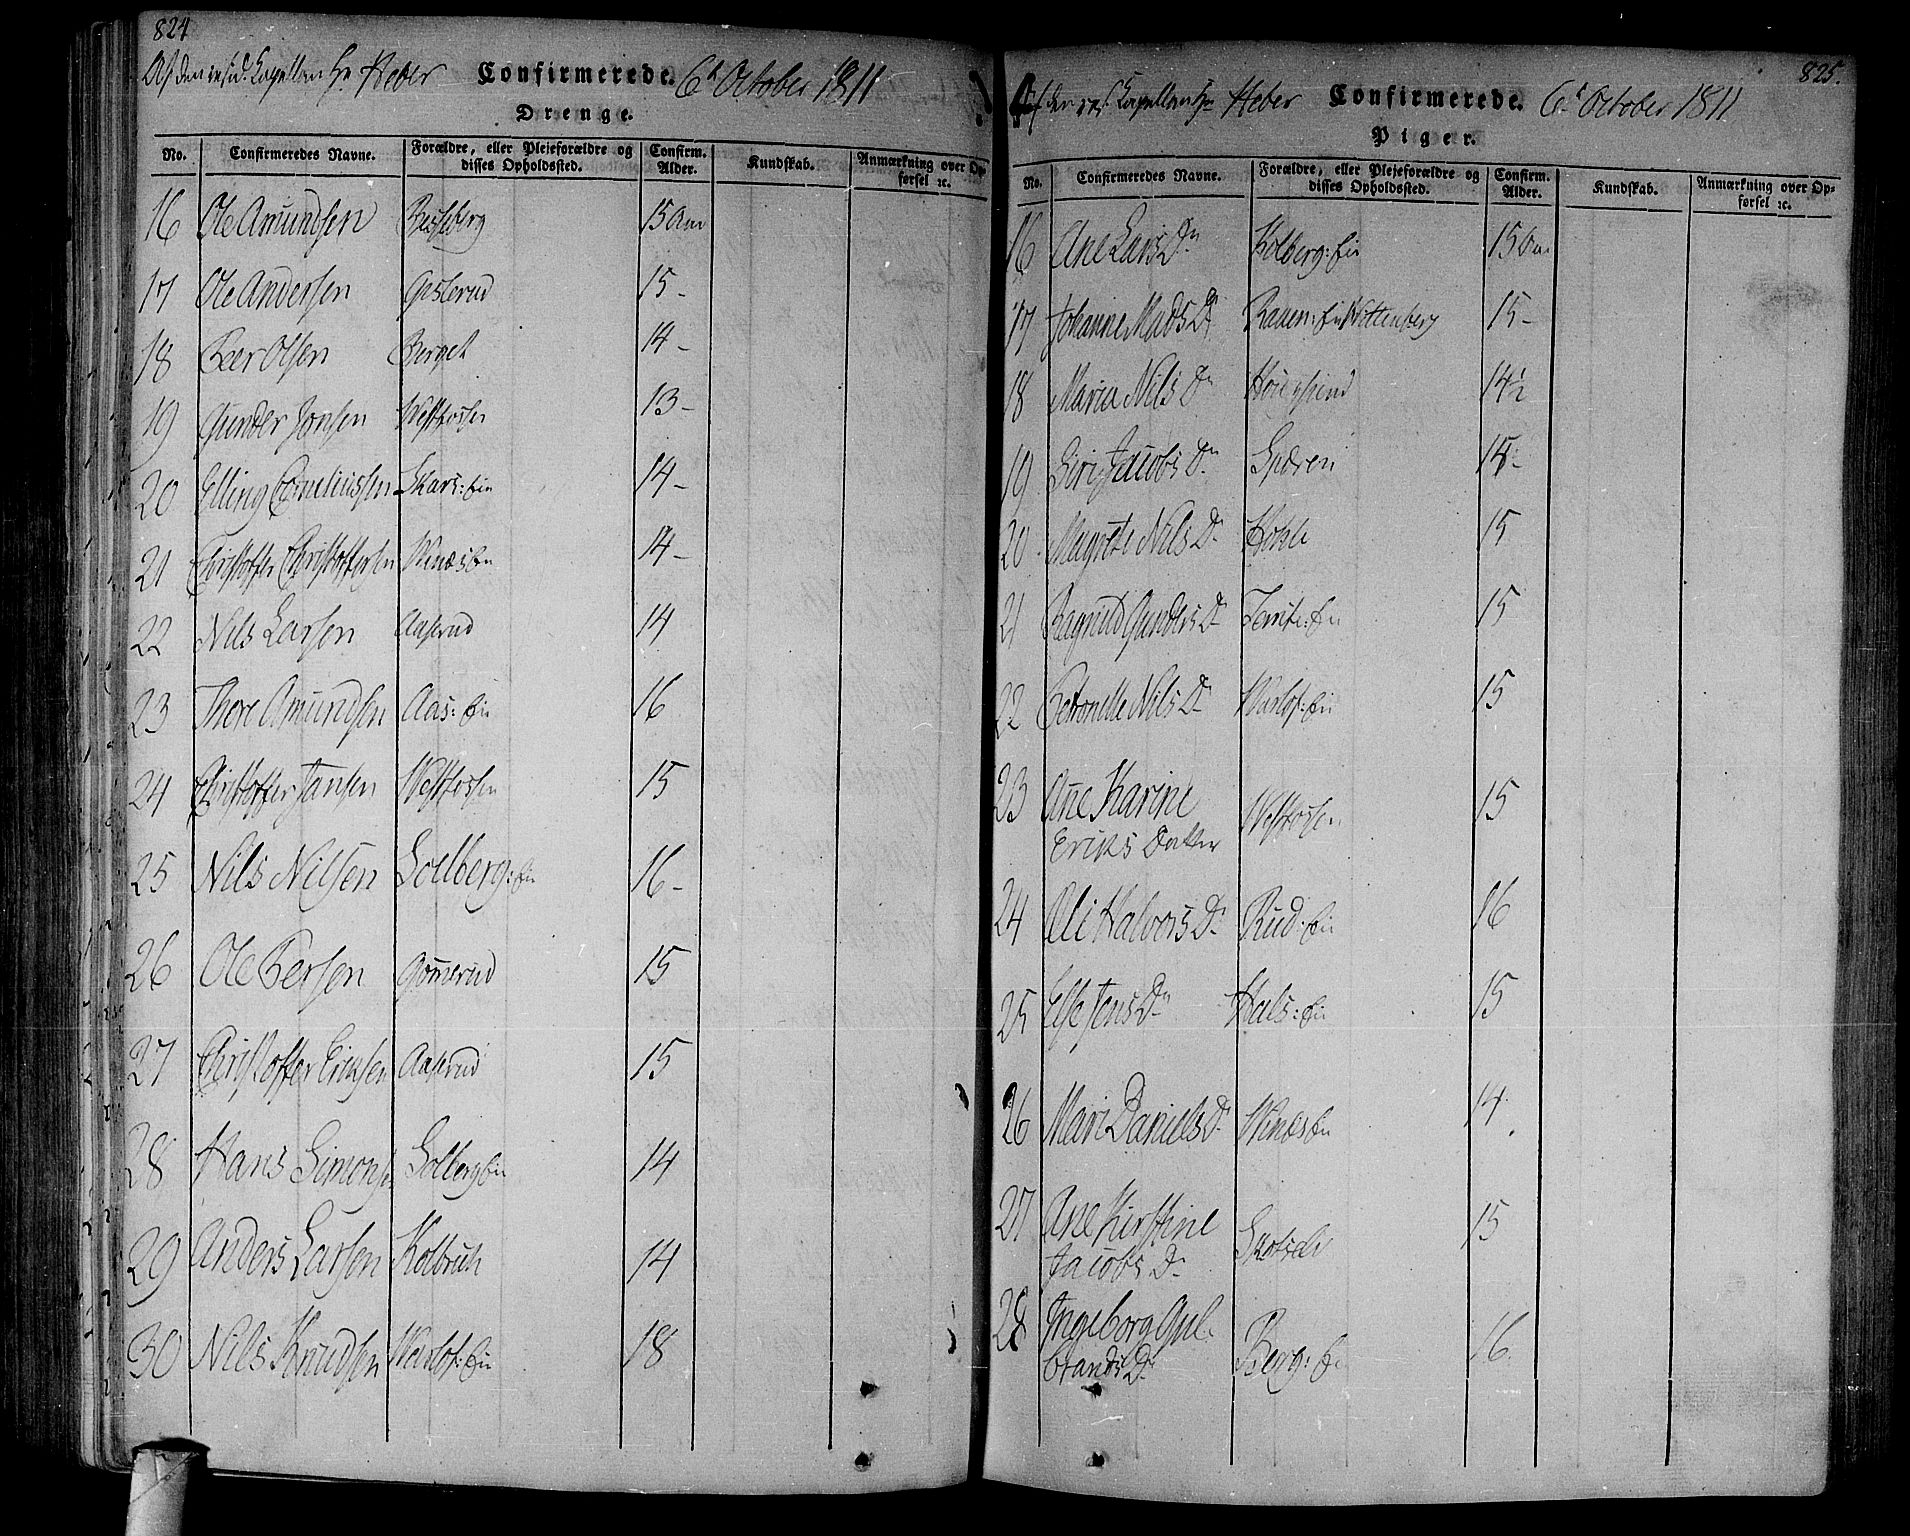 824
Af den resid. Kapellan Hr Heber Confirmerede. 6t October 1811
Drenge.
No. Confirmeredes Navne. Forældre, eller Plejeforældre og disses Opholdssted. Confirm. Alder. Kundskab. Anmærkning over Opførsel ꝛc.
16 Ole Amundsen 15 Aar
17 Ole Andersen 15 -
18 Peer Olsen Berget 14 -
19 Gunder Jonsen Vestfossen 13 -
20 Elling Corneliussen Skars: Eie 14 -
21 Christoffer Christoffersen Wenæs Eie 14 -
22 Nils Larsen Aaserud 14
23 Thore Amundsen Aas: Eie 16
24 Christoffer Jansen Vestfossen 15
25 Nils Nilsen Solberg: Eie 16 -
26 Ole Persen Gommerud 15
27 Christoffer Eriksen Aaserud 15
28 Hans Simonsen Solberg Eie 14
29 Anders Larsen Kolbræk 14
30 Nils Knudsen Warlof: Eie 18
825.
Af den res. Kapellan Hr Heber Confirmerede. 6t October 1811
Piger.
No. Confirmeredes Navne. Forældre, eller Plejeforældre og disses Opholdssted. Confirm. Alder. Kundskab. Anmærkning over Opførsel ꝛc.
16 Ane Lars Dn Kolberg: Eie 15 Aar
17 Johanne Mads Dr Raaen: Eie Wittenberg 15 -
18 Maria Nils Dn 14½
19 Siri Jacobs Dr Spæren 15 -
20 Magrete Nils Dr Hohle 15
21 Ragnild Gunders Dr 15
22 Petronelle Nils Dr Warlof: Eie 15
23 Ane Karine Vestfossen 15
Eriks Datter
24 Eli Halvors Dr Rud: Eie 16
25 Else Jens Dn Hals: Eie 15
26 Mari Daniels Dr Wenæs Eie 14.
27 Ane Kirstine Skotselv 15
Jacobs Dr
28 Ingeborg Gul- Berg: Eie 16
brands Dr